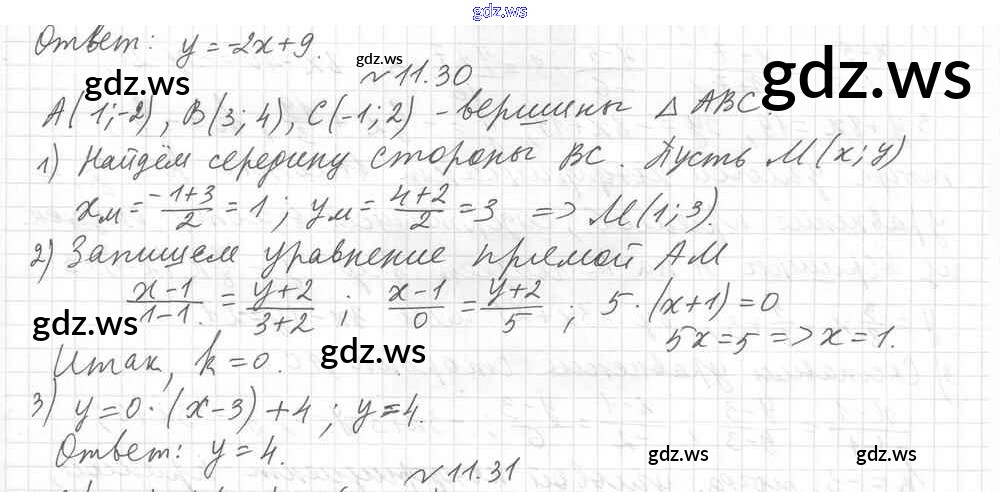 gdz.ws
Ответ: y = -2x + 9.
gdz.ws
№ 11.30
gdz.ws
gdz.ws
A(1; -2), B(3; 4), C(-1; 2) - вершины △ ABC.
1) Найдём середину стороны BC. Пусть M(x; y)
x_M = \frac{-1+3}{2} = 1; y_M = \frac{4+2}{2} = 3 => M(1; 3).
2) Запишем уравнение прямой AM
\frac{x-1}{1-1} = \frac{y+2}{3+2}; \frac{x-1}{0} = \frac{y+2}{5}; 5·(x+1) = 0
gdz.ws
5x = 5 => x = 1.
gdz.ws
Итак, k = 0.
3) y = 0·(x-3) + 4; y = 4.
Ответ: y = 4.
gdz.ws
gdz.ws
№ 11.31